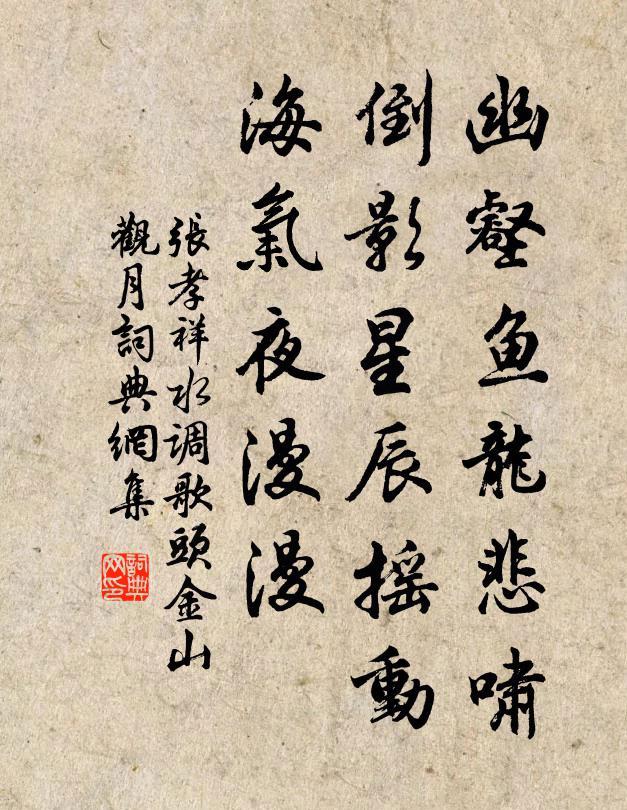 幽壑鱼龍悲嘯
倒影星辰摇動
海氣夜漫漫
張孝祥水调歌頭金山
觀月詞典網集
詞典网印